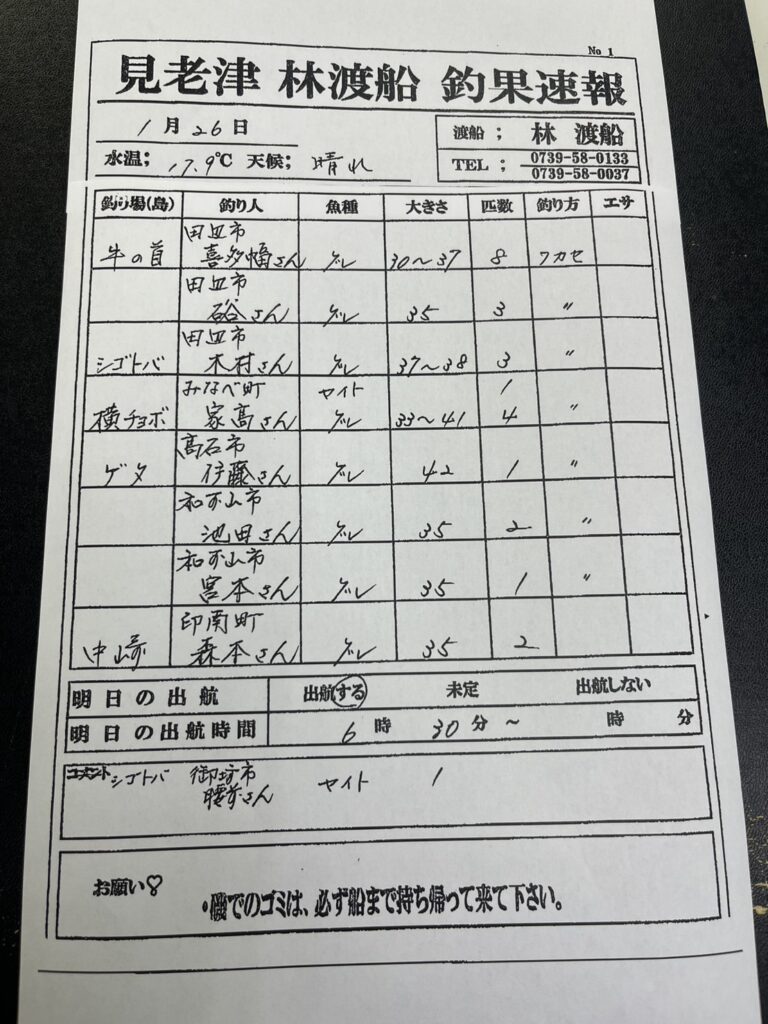 No 1
見老津 林渡船 釣果速報
1月26日
渡船; 林 渡船
水温; 17.9℃ 天候; 晴れ
TEL; 0739-58-0133
0739-58-0037
釣り場(島) 釣り人 魚種 大きさ 匹数 釣り方 エサ
田辺市
牛の首 喜多幅さん グレ 30〜37 8 フカセ
田辺市
硲さん グレ 35 3 〃
田辺市
シゴトバ 木村さん グレ 37〜38 3 〃
みなべ町 セイト 1
横チョボ 家高さん グレ 33〜41 4 〃
高石市
ゲタ 伊藤さん グレ 42 1 〃
和歌山市
池田さん グレ 35 2 〃
和歌山市
宮本さん グレ 35 1 〃
印南町
中崎 森本さん グレ 35 2
明日の出航 出航する 未定 出航しない
明日の出航時間 6時 30分〜 時 分
コメント シゴトバ 御坊市 セイト 1
さん
お願い♡
・磯でのゴミは、必ず船まで持ち帰って来て下さい。